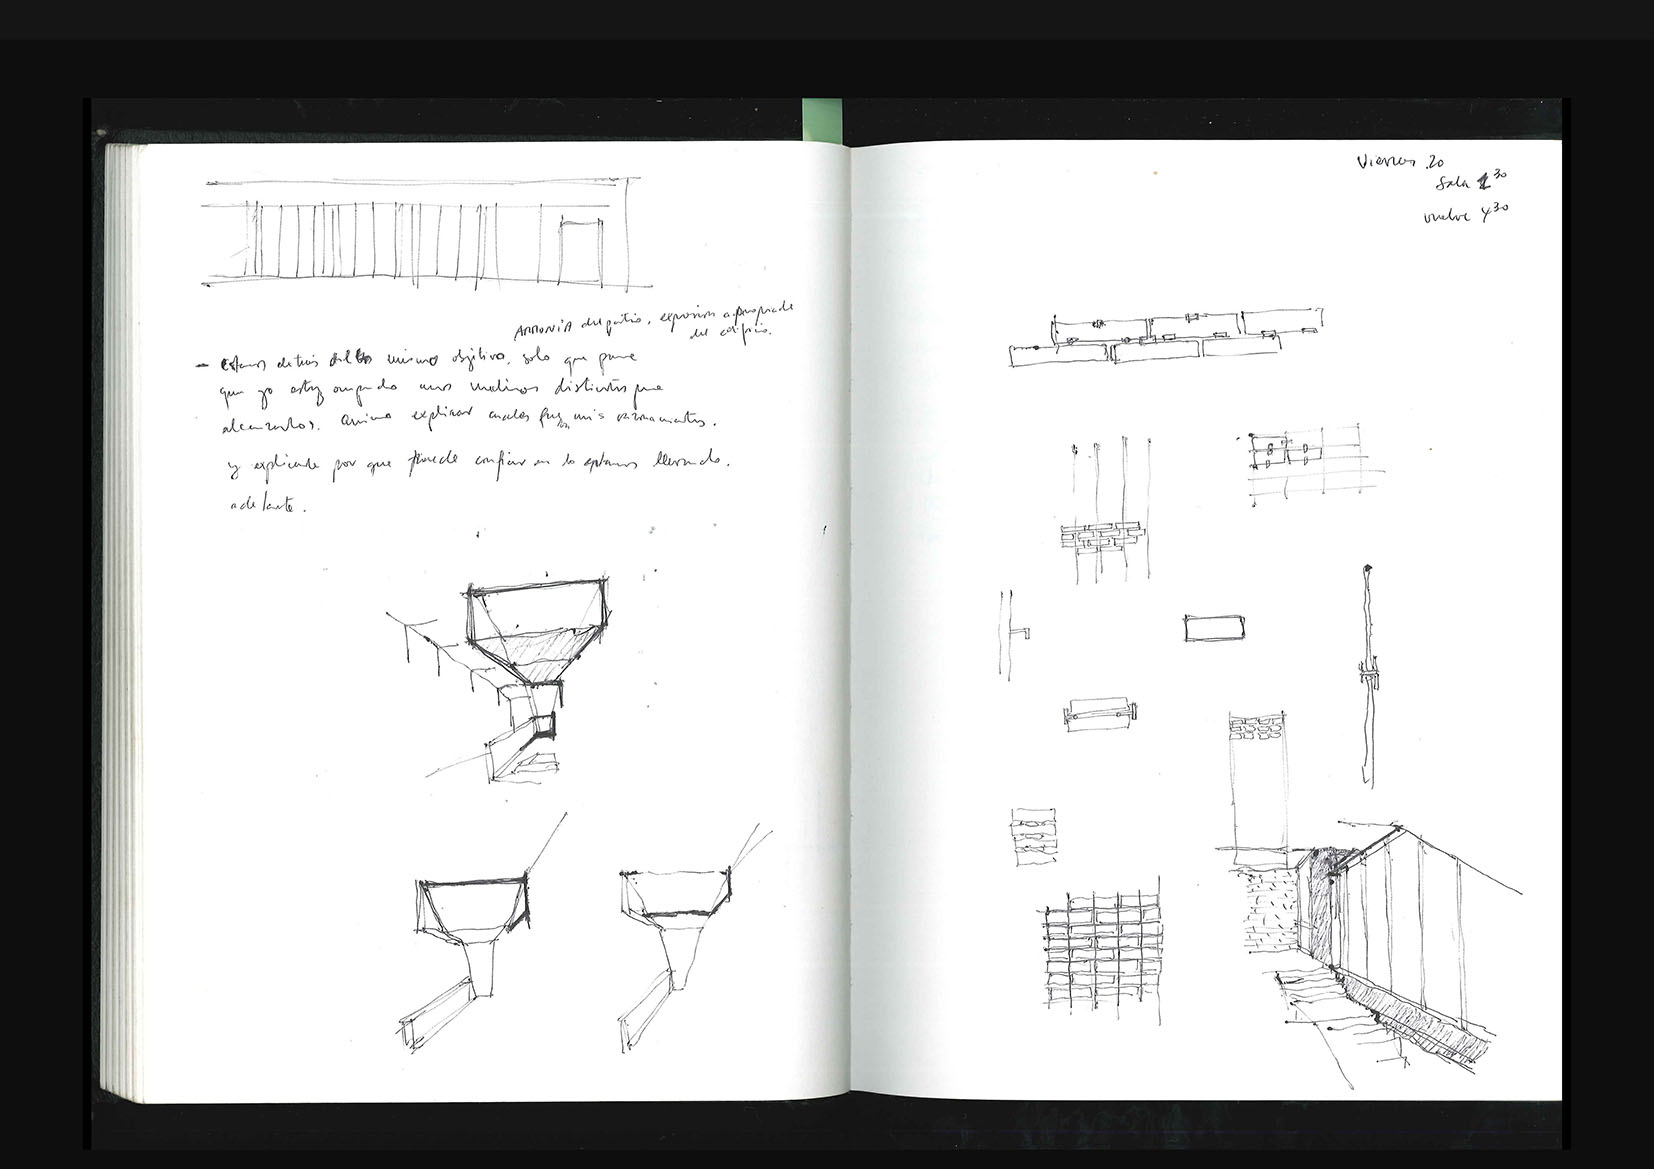 ARMONIA del patio, expresion apropiada
del edificio.
- Estamos detras del mismo objetivo, solo que
que yo estoy ocupando unos medios distintos
alcanzarlos. explicar cuales mis razonamientos.
y explicarle por que puede confiar en lo estamos llevando
adelante.
Viernes 20
Sale 30
vuelve 4 30